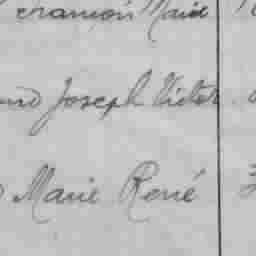 François Marie
Joseph Victor
Marie René